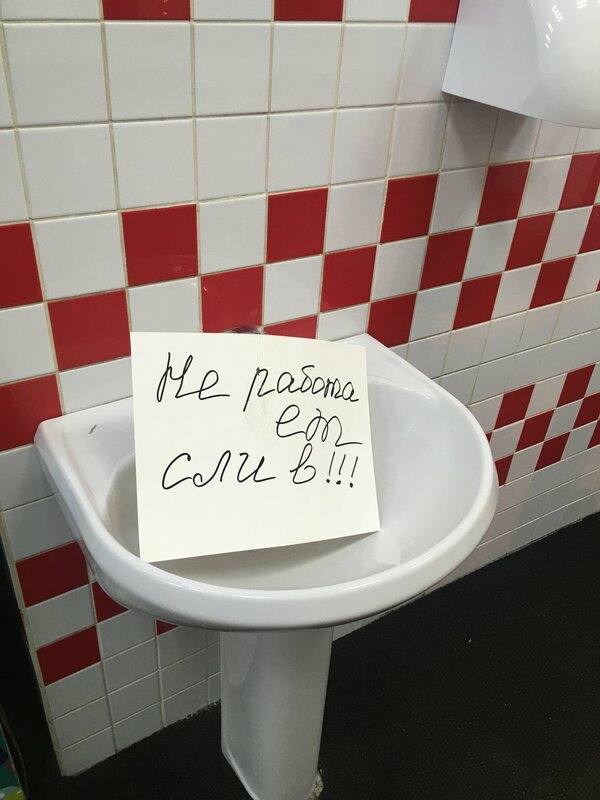 Не работа
ет
слив!!!